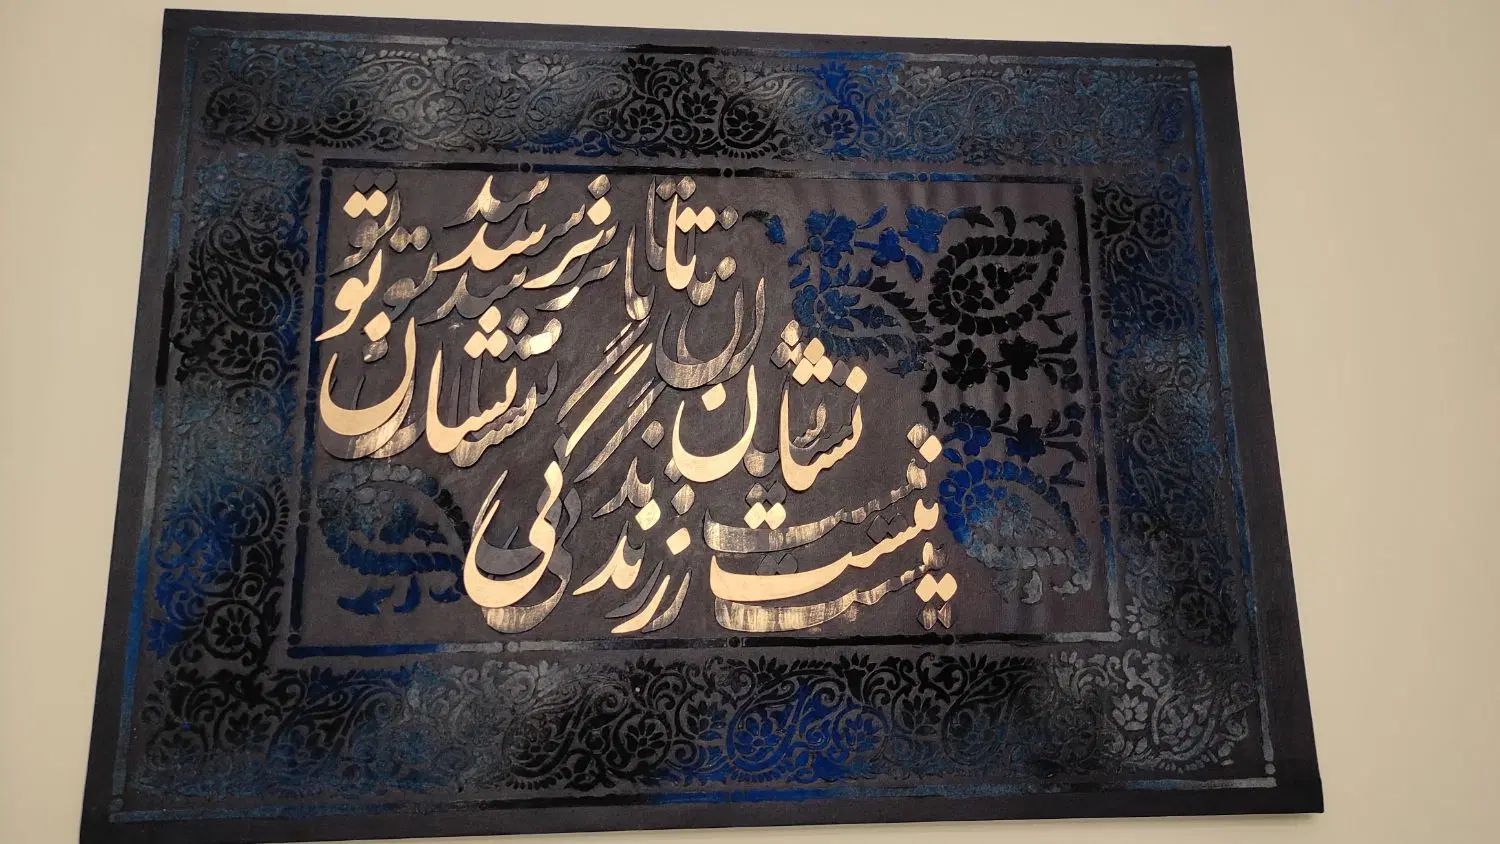 نیست نشان زندگی تا نرسد نشان تو